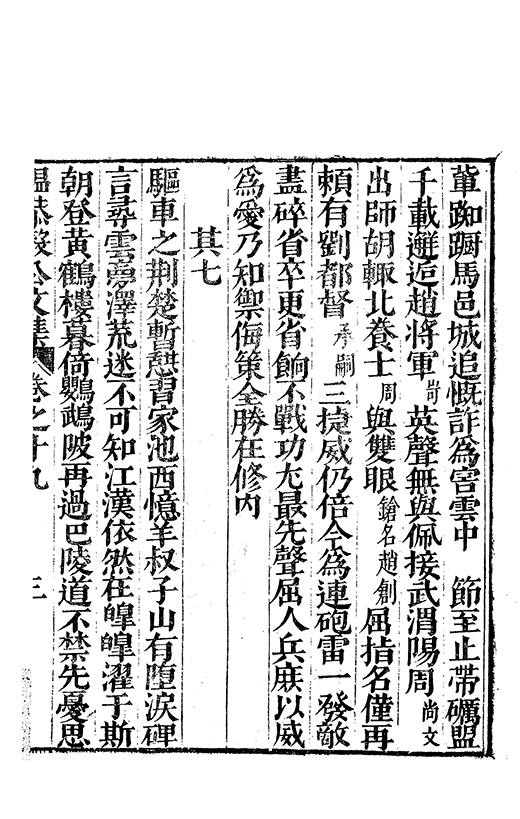 葷踟躕馬邑城追慨詐爲害雲中　節至止帶礪盟
千載邂逅趙將軍岢英聲無與佩接武渭陽周尚文
出師胡輙北養士周與雙眼鎗名趙創屈指名僅再
賴有劉都督承嗣三捷威仍倍今爲連砲雷一發敵
盡碎省卒更省餉不戰功尤最先聲屈人兵庶以威
爲愛乃知禦侮策全勝在修内
其七
驅車之荆楚暫憇習家池西憶羊叔子山有墮淚碑
言尋雲夢澤荒迷不可知江漢依然在皥皥濯于斯
朝登黄鶴樓暮倚鸚鵡陂再過巴陵道不禁先憂思
温恭毅公文集　卷之十九　三